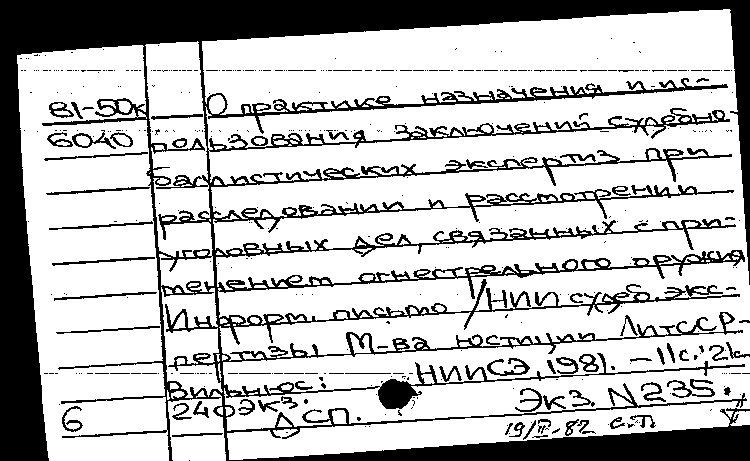 81-50к О практике назначения и ис-
6040 пользования заключений судебно-
баллистических экспертиз при
расследовании и рассмотрении
уголовных дел, связанных с при-
менением огнестрельного оружия
Информ. письмо / НИИ судеб. экс-
пертизы М-ва юстиции ЛитССР-
Вильнюс: НИИСЭ, 1981. - 11с.; 21с
240экз. Экз. N 235.
6 ДСП.
19/II-82 с.п.